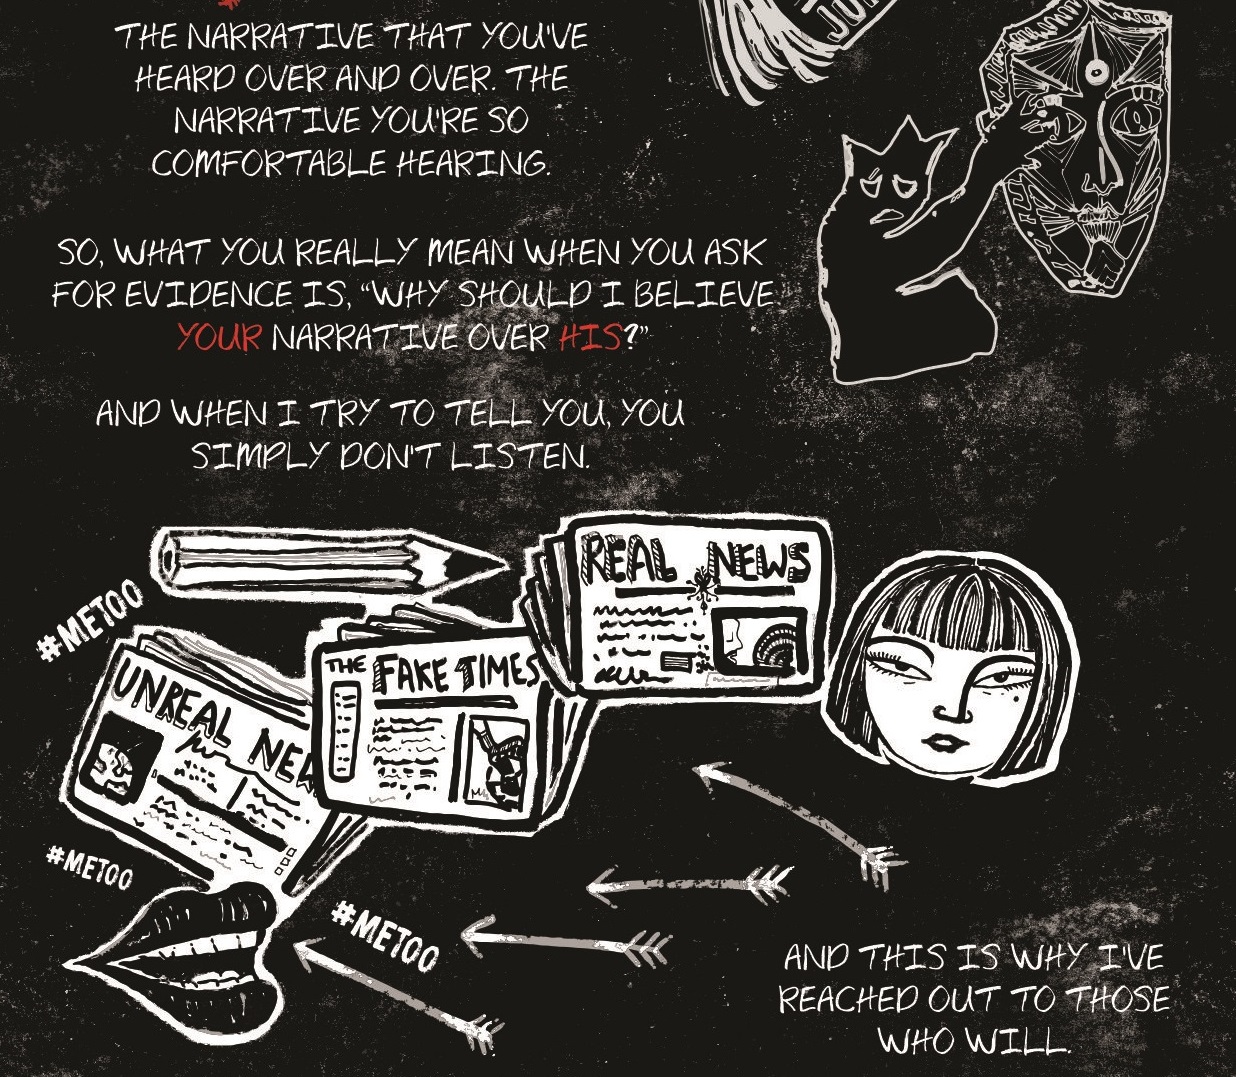 THE NARRATIVE THAT YOU'VE
HEARD OVER AND OVER. THE
NARRATIVE YOU'RE SO
COMFORTABLE HEARING.
SO, WHAT YOU REALLY MEAN WHEN YOU ASK
FOR EVIDENCE IS, “WHY SHOULD I BELIEVE
YOUR NARRATIVE OVER HIS?”
AND WHEN I TRY TO TELL YOU, YOU
SIMPLY DON'T LISTEN.
REAL NEWS
#METOO
THE FAKE TIMES
UNREAL NEW
#METOO
#METOO
AND THIS IS WHY I'VE
REACHED OUT TO THOSE
WHO WILL.